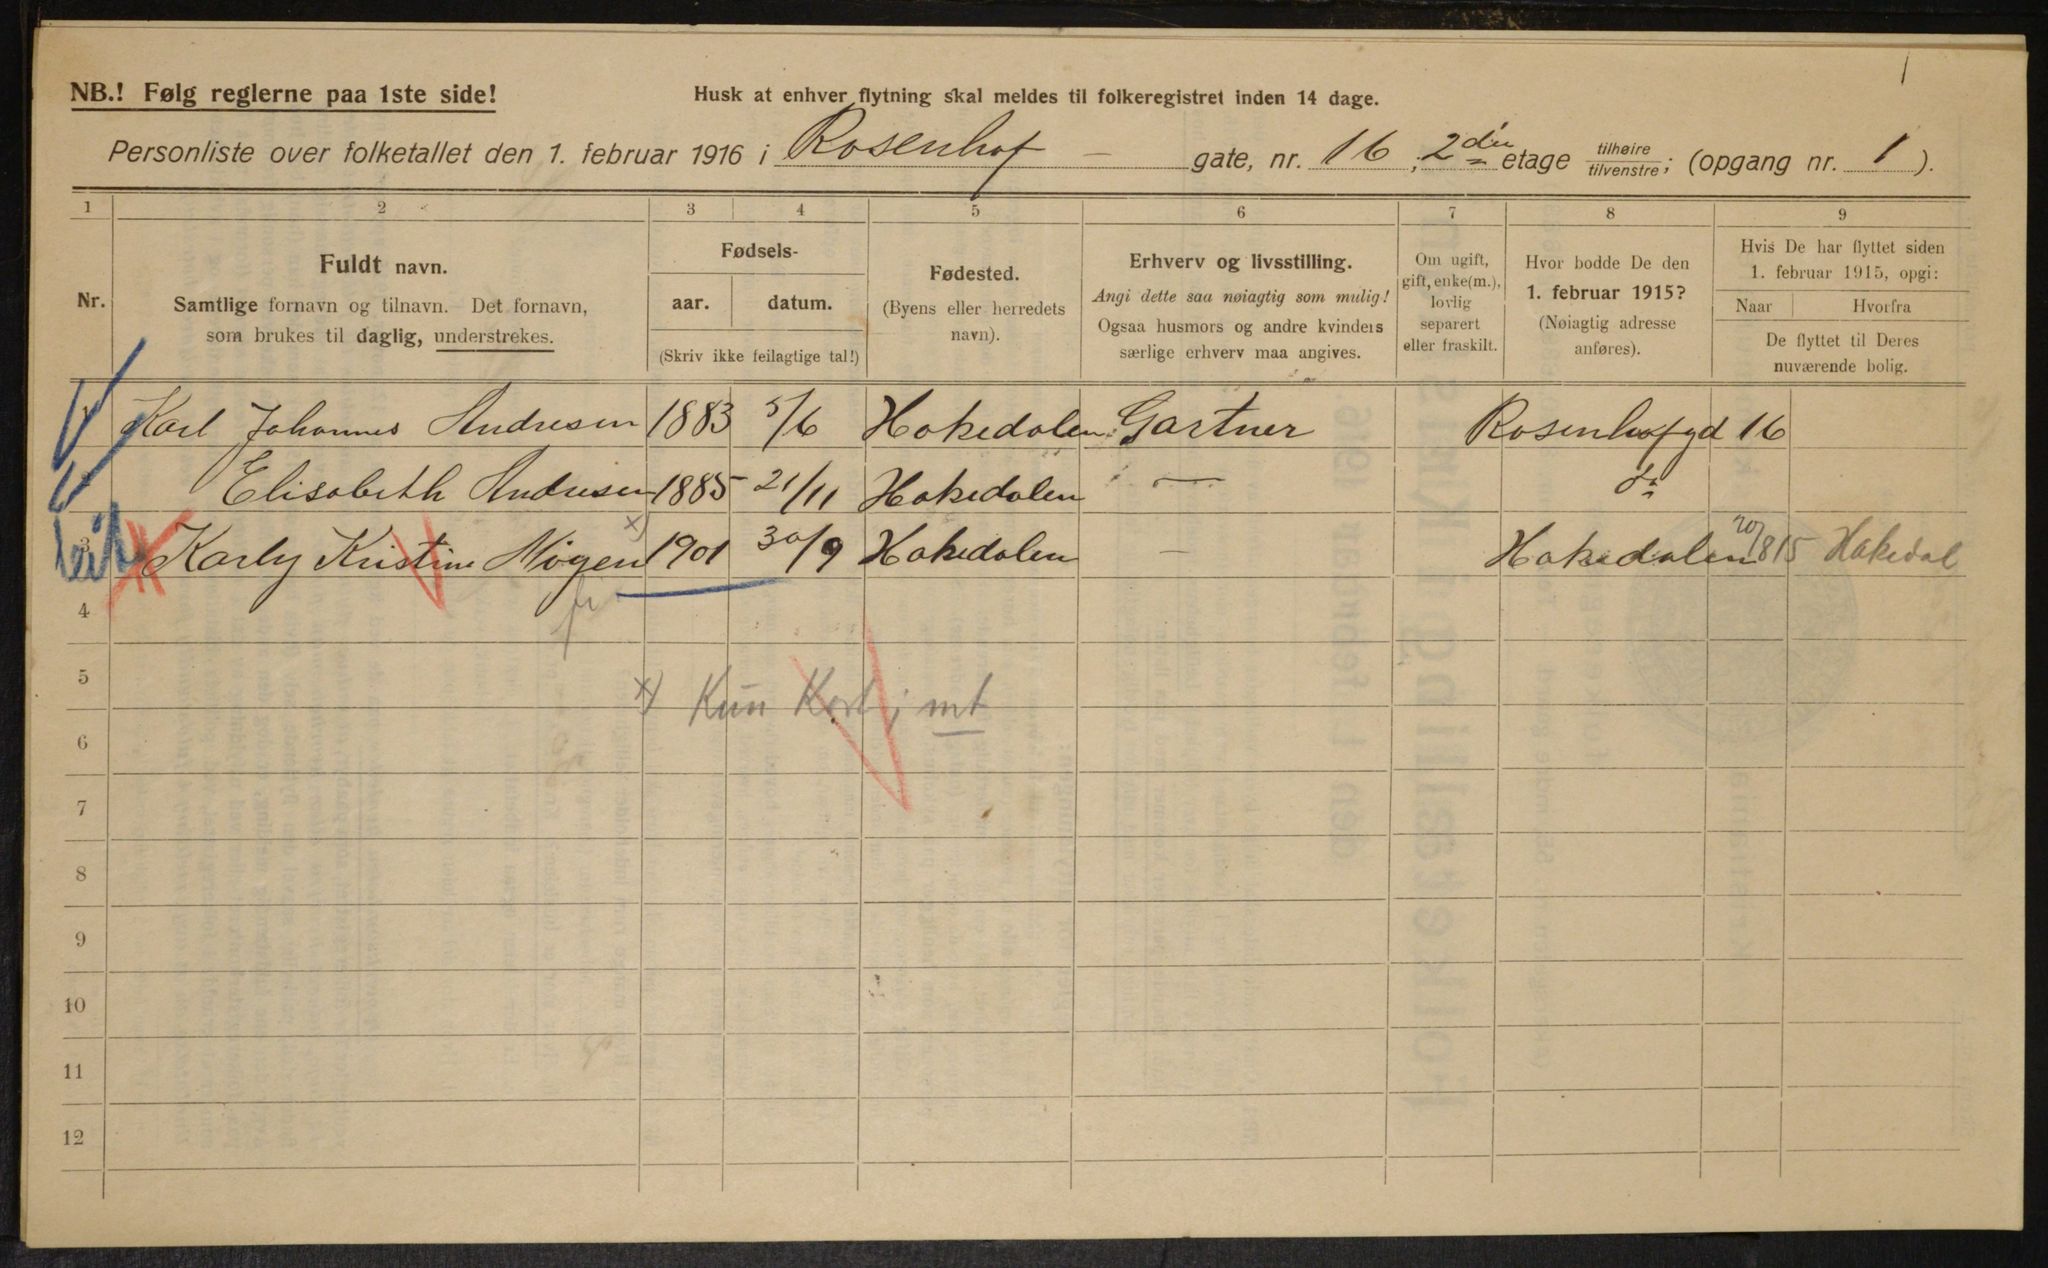 1
NB.! Følg reglerne paa 1ste side!
Husk at enhver flytning skal meldes til folkeregistret inden 14 dage.
Personliste over folketallet den 1. februar 1916 i Rosenhof - gate, nr. 16, 2den etage tilhøire/tilvenstre; (opgang nr. 1).
1 2 3 4 5 6 7 8 9
Nr.
Fuldt navn.
Samtlige fornavn og tilnavn. Det fornavn,
som brukes til daglig, understrekes.
Fødsels-
aar. datum.
(Skriv ikke feilagtige tal!)
Fødested.
(Byens eller herredets
navn).
Erhverv og livsstilling.
Angi dette saa nøiagtig som mulig!
Ogsaa husmors og andre kvinders
særlige erhverv maa angives.
Om ugift,
gift, enke(m.),
lovlig
separert
eller fraskilt.
Hvor bodde De den
1. februar 1915?
(Nøiagtig adresse
anføres).
Hvis De har flyttet siden
1. februar 1915, opgi:
Naar Hvorfra
De flyttet til Deres
nuværende bolig.
Karl Johannes Andresen 1883 5/6 Hakedalen Gartner Rosenhofgd 16
Elisabeth Andresen 1885 21/11 Hakedalen — do
3 Karly Kristine Mogen x) 1901 30/9 Hakedalen — Hakedalen 20/8 15 Hakedal
4
5
x) Kun Kort; mt
6
7
8
9
10
11
12